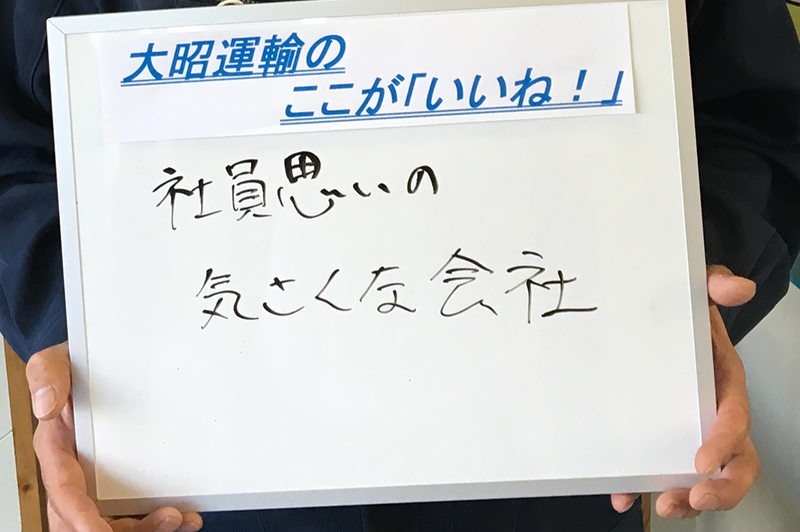 大昭運輸の
ここが「いいね！」
社員思いの
気さくな会社